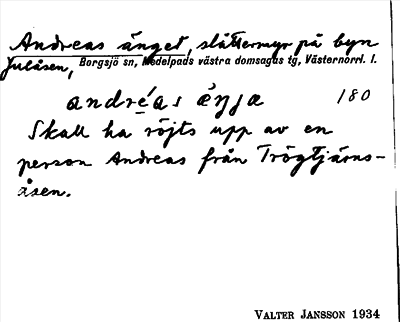 Andreas änget, slåttermyr på byn
Julåsen, Borgsjö sn, Medelpads västra domsagas tg, Västernorrl. l.
andréas ä́ŋja 180
Skall ha röjts upp av en
person Andreas från Trögtjärns-
åsen.
VALTER JANSSON 1934